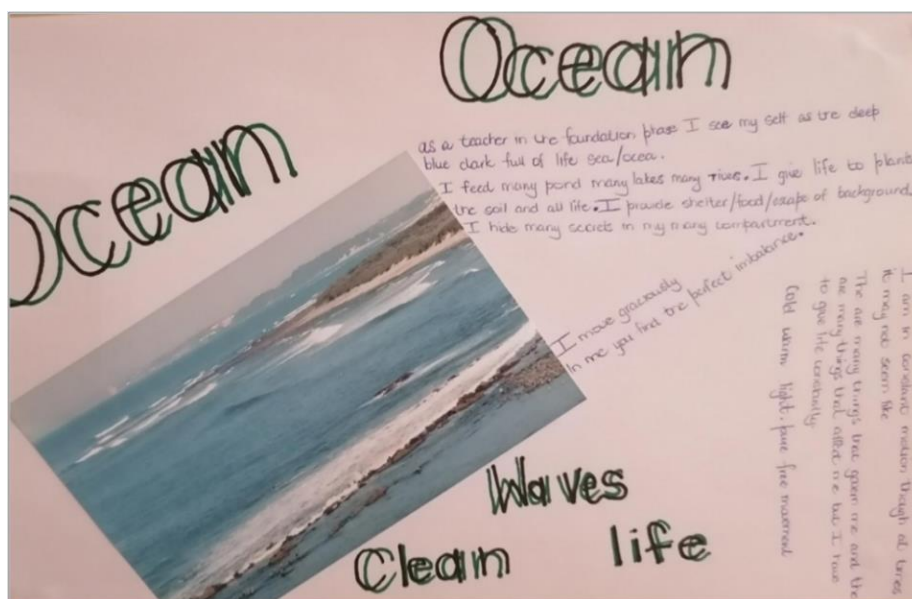 Ocean
Ocean
as a teacher in the foundation phase I see my self as the deep
blue dark full of life sea/ocea.
I feed many pond many lakes many rives. I give life to plants
the soil and all life. I provide shelter/food/escape of background.
I hide many secrets in my many compartment.
I move graciously
In me you find the perfect imbalance.
I am in constant motion though at times
it may not seem like
The are many things that govern me and the
are many things that affect me but I have
to give life constantly
Cold warm light, pure free movement
Waves
Clean life